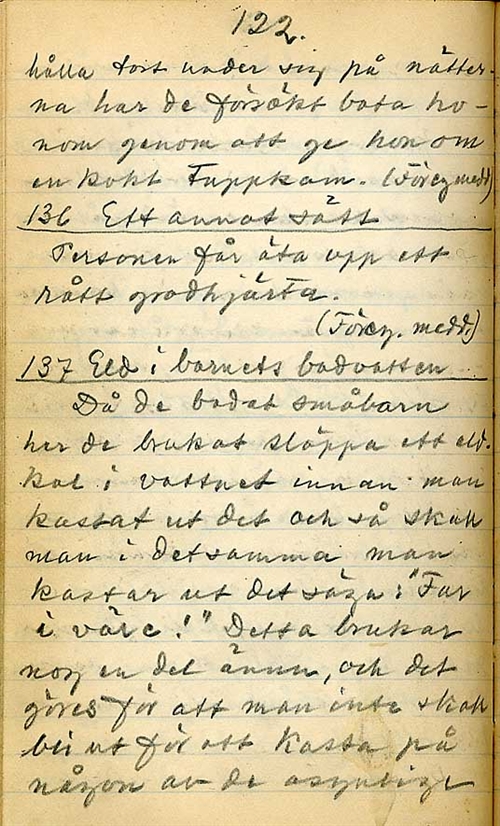 122.
hålla tort under sig på nätter-
na har de försökt bota ho-
nom genom att ge honom
en kokt Tuppkam. (Föreg medd)
136 Ett annat sätt
Personen får äta upp ett
rått grodhjärta.
(Föreg. medd.)
137 Eld i barnets badvatten
Då de badat småbarn
har de brukat släppa ett eld-
kol i vattnet innan man
kastat ut det och så skall
man i detsamma man
kastar ut det säga: "Far
i våre!" Detta brukar
nog en del ännu, och det
göres för att man inte skall
bli ut för att kasta på
någon av de osynliga